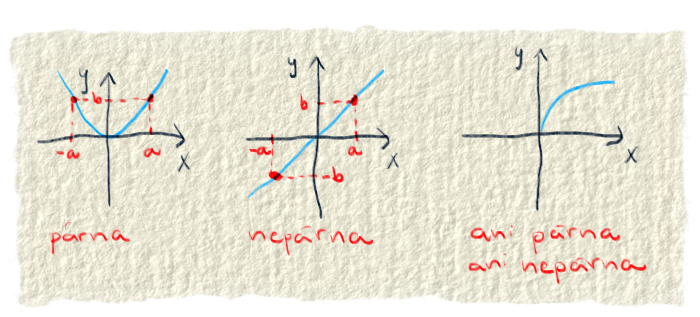 y
b
-a
a
x
párna
y
b
-a
a
x
-b
nepárna
y
x
ani párna
ani nepárna